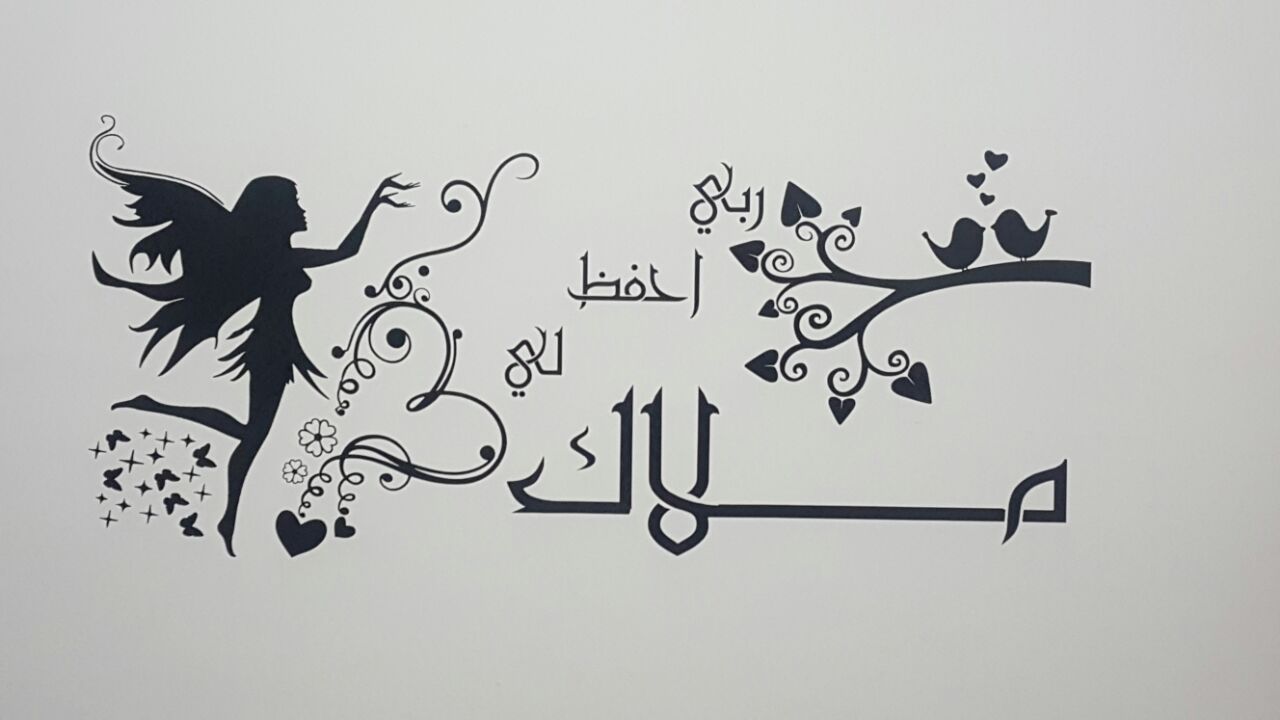 ربي
احفظ
لي
ملاك